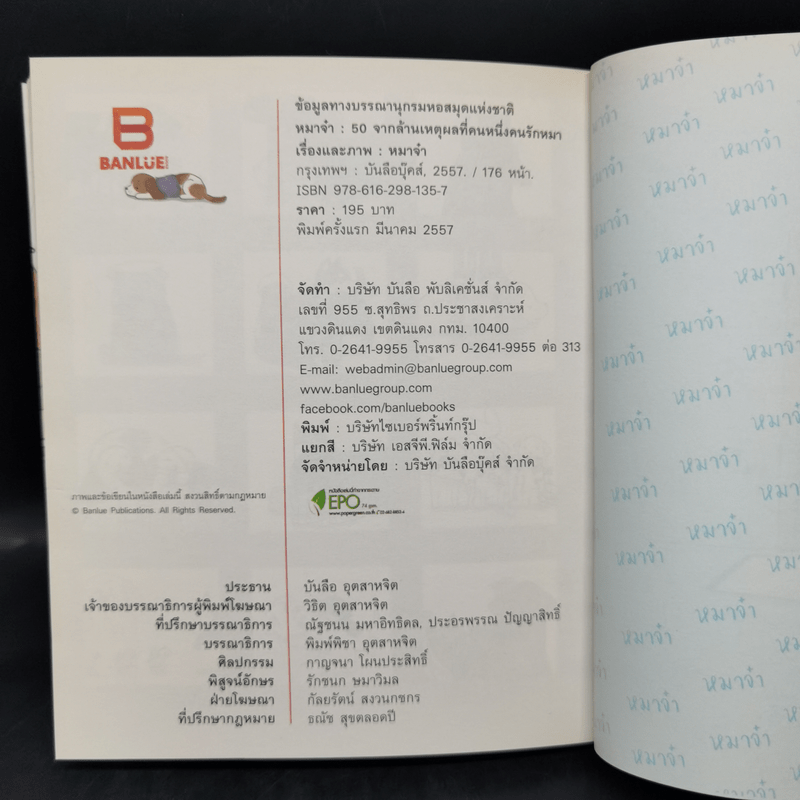 BANLUE
ข้อมูลทางบรรณานุกรมหอสมุดแห่งชาติ
หมาจ๋า : 50 จากล้านเหตุผลที่คนหนึ่งคนรักหมา
เรื่องและภาพ : หมาจ๋า
กรุงเทพฯ : บันลือบุ๊คส์, 2557. / 176 หน้า.
ISBN 978-616-298-135-7
ราคา : 195 บาท
พิมพ์ครั้งแรก มีนาคม 2557
จัดทำ : บริษัท บันลือ พับลิเคชั่นส์ จำกัด
เลขที่ 955 ซ.สุทธิพร ถ.ประชาสงเคราะห์
แขวงดินแดง เขตดินแดง กทม. 10400
โทร. 0-2641-9955 โทรสาร 0-2641-9955 ต่อ 313
E-mail: webadmin@banluegroup.com
www.banluegroup.com
facebook.com/banluebooks
พิมพ์ : บริษัทไซเบอร์พริ้นท์กรุ๊ป
แยกสี : บริษัท เอสจีพี.ฟิล์ม จำกัด
จัดจำหน่ายโดย : บริษัท บันลือบุ๊คส์ จำกัด
ภาพและข้อเขียนในหนังสือเล่มนี้ สงวนสิทธิ์ตามกฎหมาย
© Banlue Publications. All Rights Reserved.
EPO
ประธาน บันลือ อุตสาหจิต
เจ้าของบรรณาธิการผู้พิมพ์โฆษณา วิธิต อุตสาหจิต
ที่ปรึกษาบรรณาธิการ ณัฐชนน มหาอิทธิดล, ประอรพรรณ ปัญญาสิทธิ์
บรรณาธิการ พิมพ์พิชา อุตสาหจิต
ศิลปกรรม กาญจนา โผนประสิทธิ์
พิสูจน์อักษร รักชนก ษมาวิมล
ฝ่ายโฆษณา กัลยรัตน์ สงวนกชกร
ที่ปรึกษากฎหมาย ธณัช สุขตลอดปี
หมาจ๋า
หมาจ๋า
หมาจ๋า
หมาจ๋า
หมาจ๋า
หมาจ๋า
หมาจ๋า
หมาจ๋า
หมาจ๋า
หมาจ๋า
หมาจ๋า
หมาจ๋า